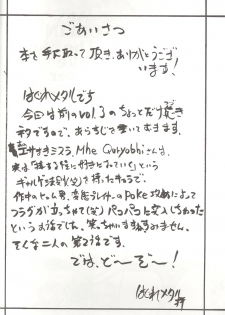 ごあいさつ
本を手に取って頂き、ありがとうござ
います!
はぐれメタルです
今回は前のvol.3のちょっとだけ続き
ですので、あらすじを書いておきます。
エサオミスラ、Mhe Quryobhiさんは、
実は「接する程に好きになっていく」という
ギャルゲ法則(笑)を持ったキャラで、
作中のヒュム男、変態プレイヤーのPoke攻めによって
フラグが立っちゃて(笑)パコパコに突入しちゃった
というお話でした。笑っちゃいますねすみません。
そんな二人の第2話です。
では、ど〜ぞ〜!
はぐれメタル
拝